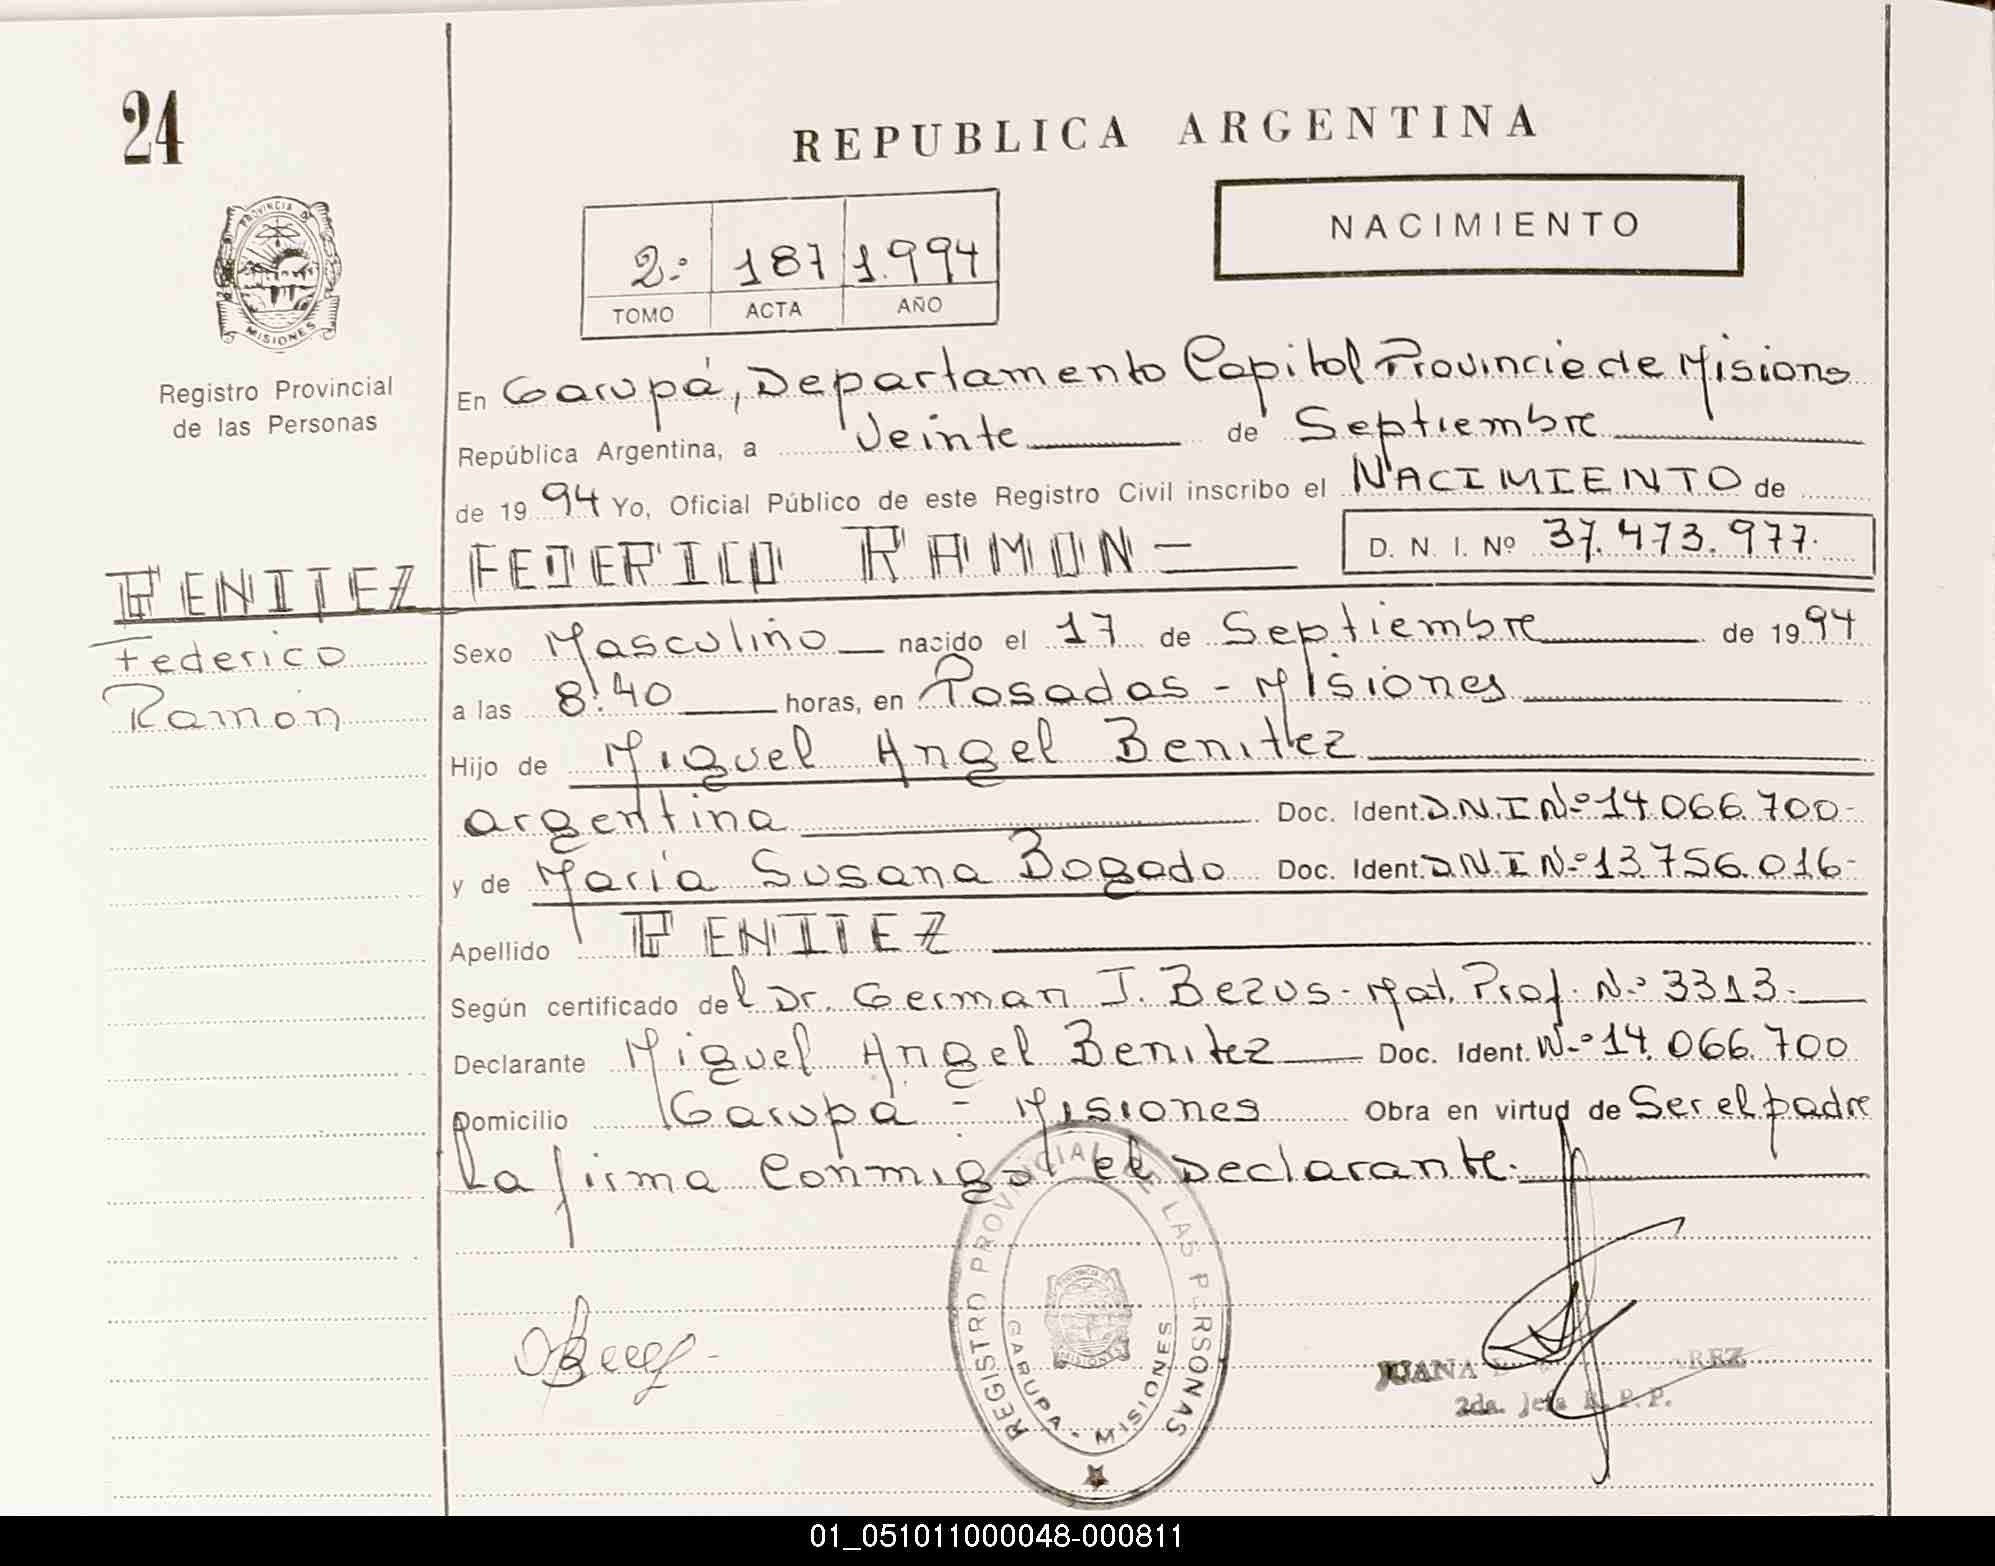 24
REPUBLICA ARGENTINA
NACIMIENTO
2.º 187 1.994
TOMO ACTA AÑO
PROVINCIA DE
MISIONES
Registro Provincial
de las Personas
En Garupá, Departamento Capital Provincia de Misiones
República Argentina, a Veinte de Septiembre
de 1994 Yo, Oficial Público de este Registro Civil inscribo el NACIMIENTO de
FEDERICO RAMON D. N. I. Nº 37.473.977.
BENITEZ
Federico
Ramón
Sexo Masculino nacido el 17 de Septiembre de 1994
a las 8:40 horas, en Posadas - Misiones
Hijo de Miguel Angel Benitez
argentina Doc. Ident. D.N.I Nº 14.066.700-
y de María Susana Bogado Doc. Ident. D.N.I Nº 13.756.016-
Apellido BENITEZ
Según certificado del Dr. German J. Bezus - Mat. Prof. Nº 3313.
Declarante Miguel Angel Benitez Doc. Ident. Nº 14.066.700
Domicilio Garupá - Misiones Obra en virtud de Ser el padre
La firma Conmigo el Declarante.
REGISTRO PROVINCIAL DE LAS PERSONAS
GARUPA - MISIONES
JUANA
2da. Jefa R.P.P.
01_051011000048-000811